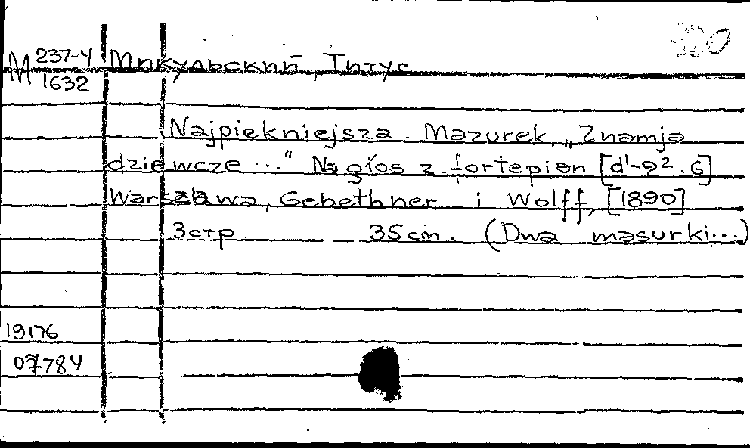 320
М 237-4 Микульский, Титус
1632
Najpiękniejsza. Mazurek „Znamja
dziewcze ..." Na głos z fortepian [d¹-e². G]
Warszawa, Gebethner i Wolff, [1890]
3стр 35cm. (Dwa masurki...)
19176
07784